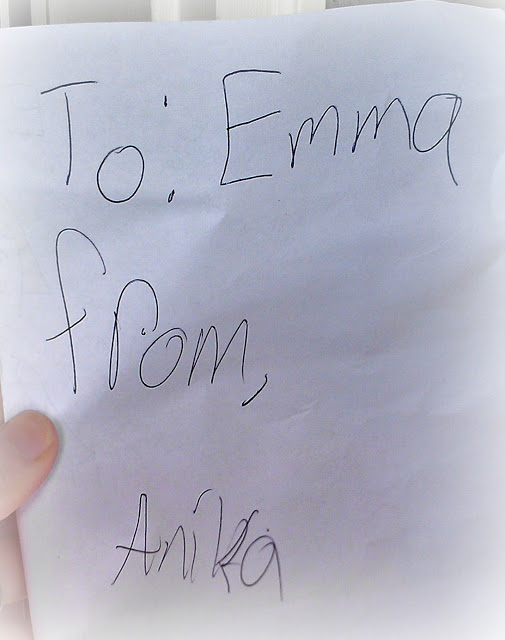 To: Emma
from,
Anika